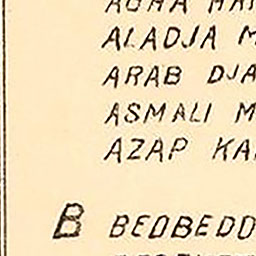 ALADJA M
ARAB DJA
ASMALI M
AZAP KA
B BEDBEDD